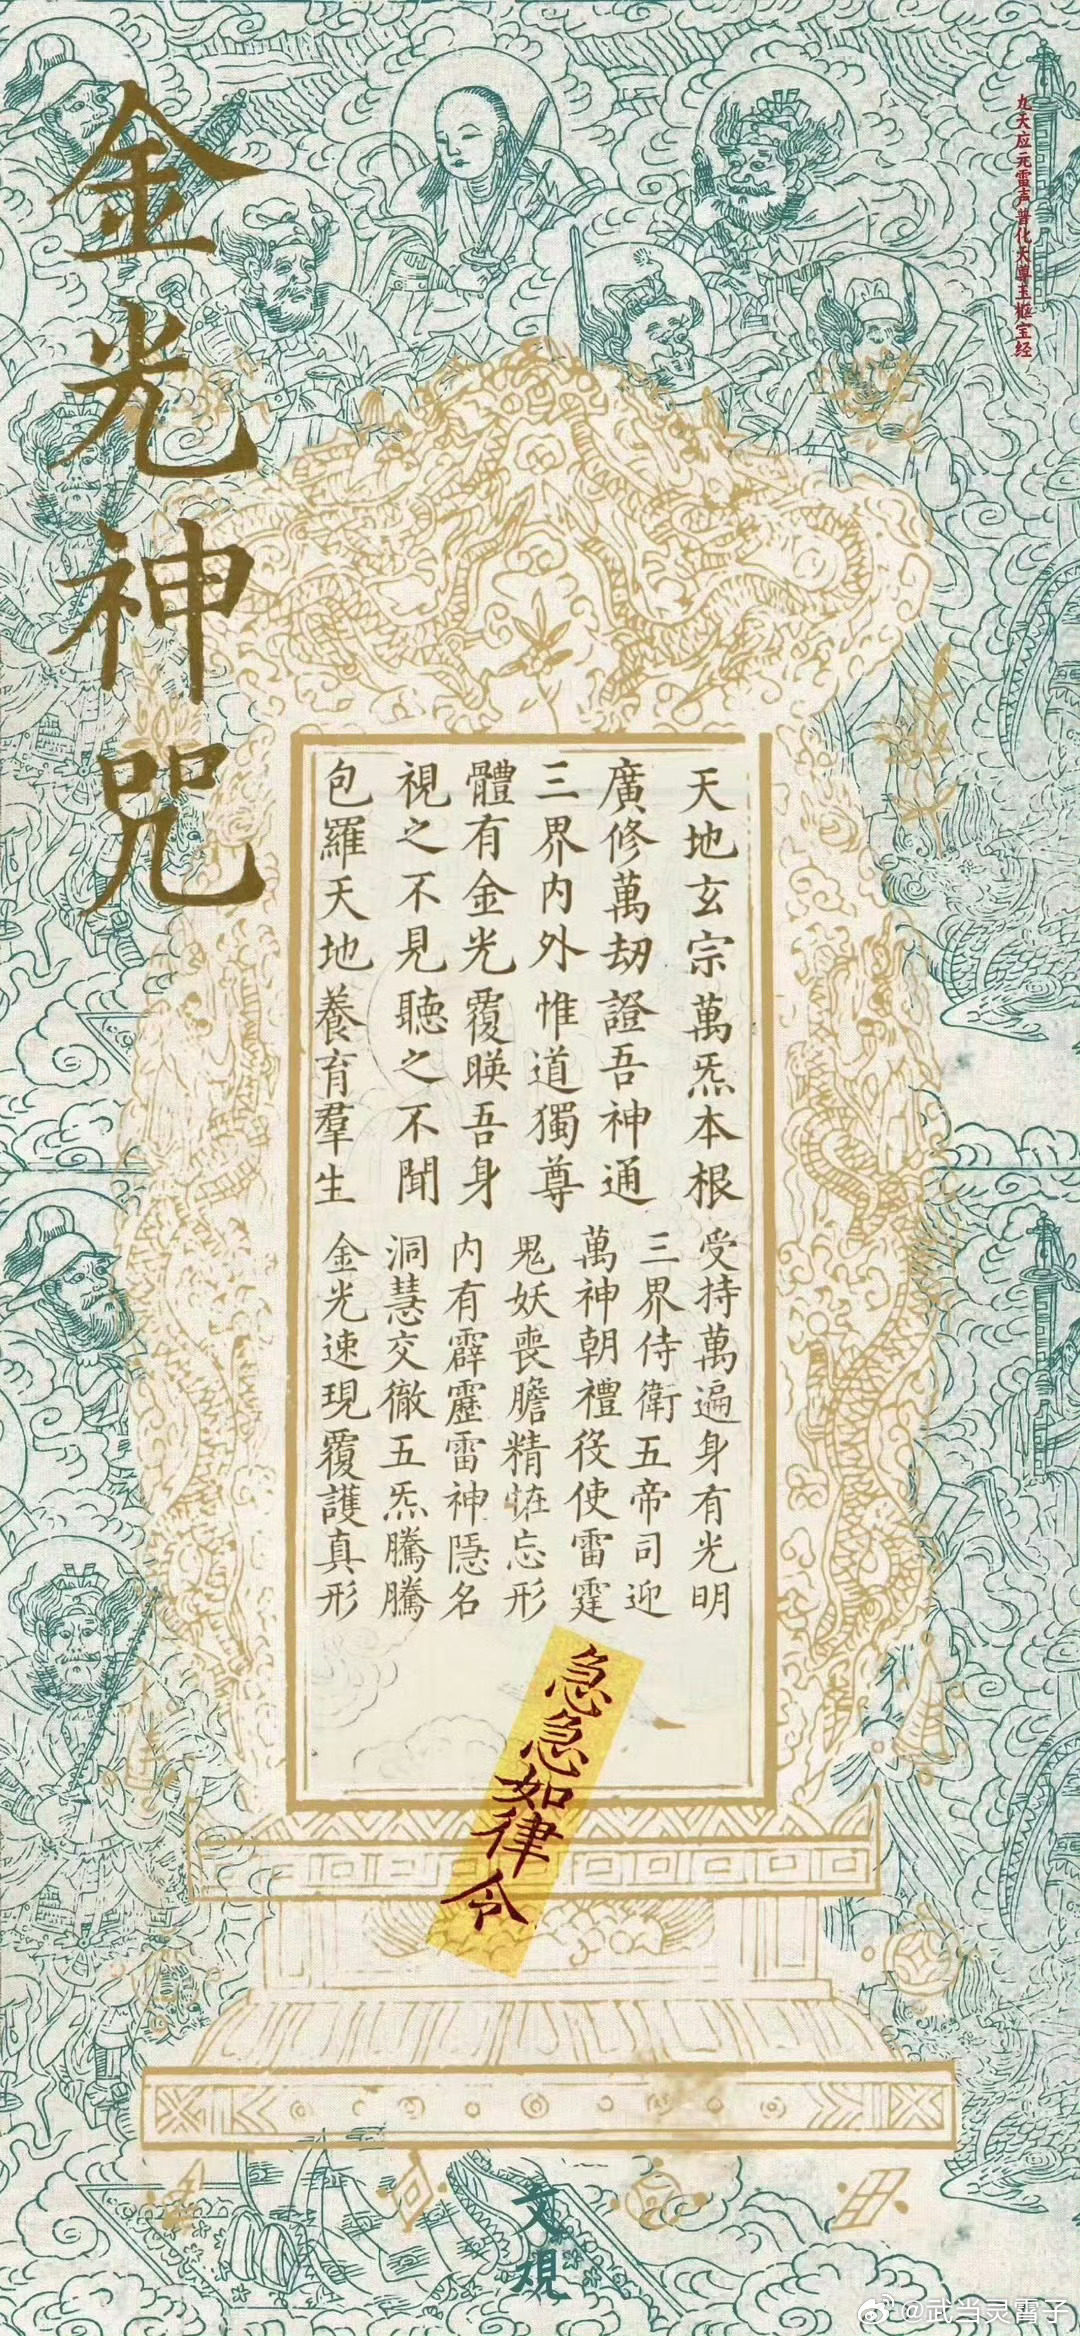 九天应元雷声普化天尊玉枢宝经
金光神咒
天地玄宗萬炁本根
廣修萬劫證吾神通
三界内外惟道獨尊
體有金光覆映吾身
視之不見聽之不聞
包羅天地養育羣生
受持萬遍身有光明
三界侍衛五帝司迎
萬神朝禮役使雷霆
鬼妖喪膽精怪忘形
内有霹靂雷神隱名
洞慧交徹五炁騰騰
金光速現覆護真形
急急如律令
文觀
@武当灵霄子